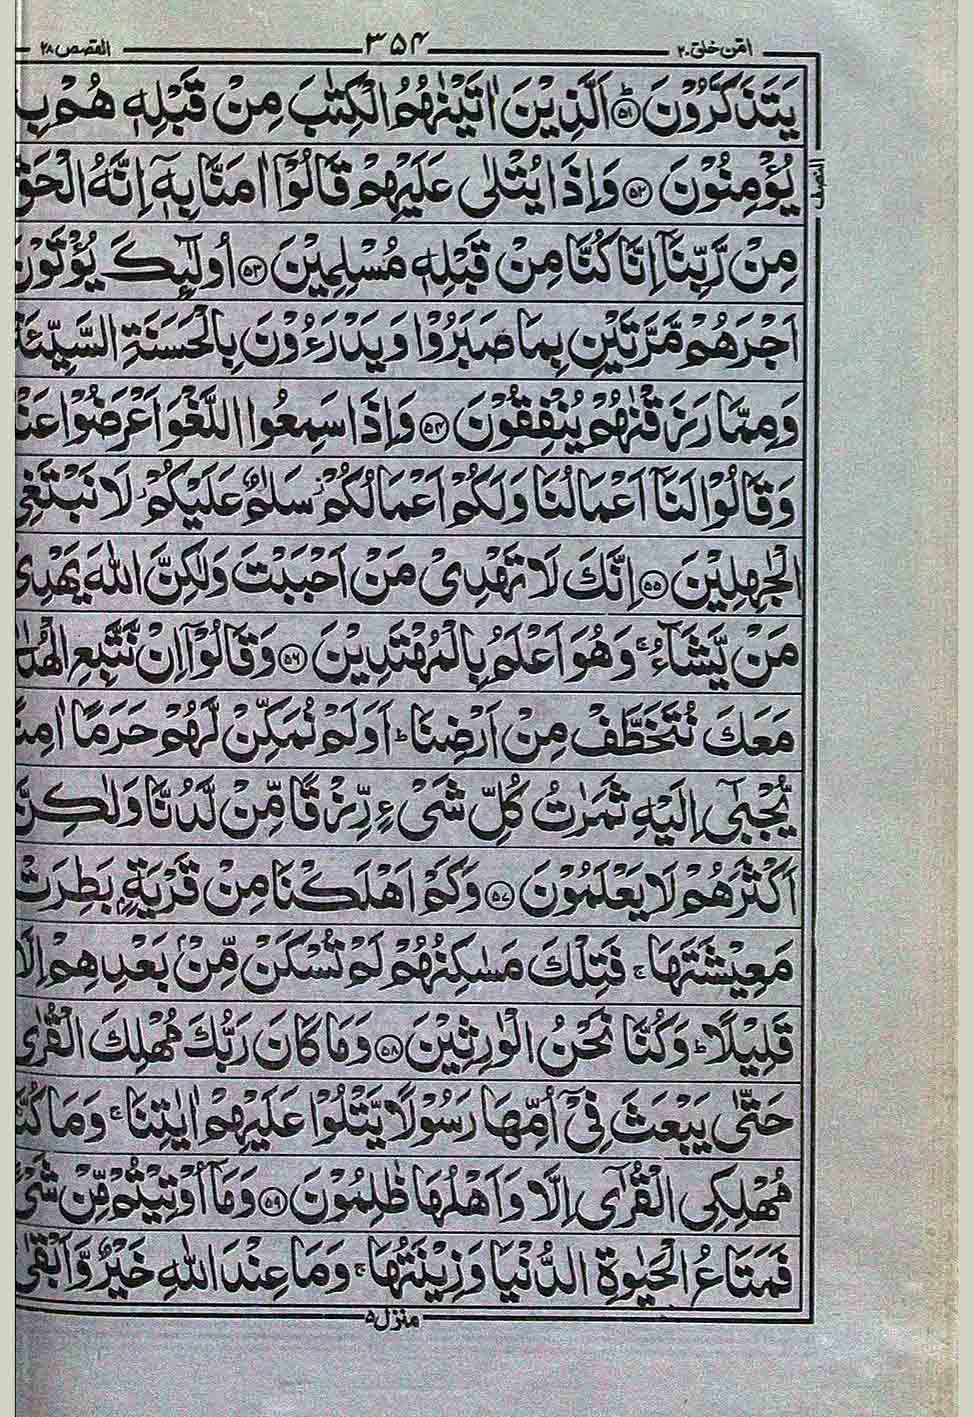 امن خلق ٢٠ ٣٥٤ القصص ٢٨
النصف
يَتَذَكَّرُوْنَ ؕ﴿۵۱﴾ اَلَّذِيْنَ اٰتَيْنٰهُمُ الْكِتٰبَ مِنْ قَبْلِهٖ هُمْ بِ
يُؤْمِنُوْنَ ﴿۵۲﴾ وَاِذَا يُتْلٰى عَلَيْهِمْ قَالُوْۤا اٰمَنَّا بِهٖۤ اِنَّهُ الْحَقُّ
مِنْ رَّبِّنَاۤ اِنَّا كُنَّا مِنْ قَبْلِهٖ مُسْلِمِيْنَ ﴿۵۳﴾ اُولٰٓئِكَ يُؤْتَوْنَ
اَجْرَهُمْ مَّرَّتَيْنِ بِمَا صَبَرُوْا وَيَدْرَءُوْنَ بِالْحَسَنَةِ السَّيِّئَةَ
وَمِمَّا رَزَقْنٰهُمْ يُنْفِقُوْنَ ﴿۵۴﴾ وَاِذَا سَمِعُوا اللَّغْوَ اَعْرَضُوْا عَنْ
وَقَالُوْا لَنَاۤ اَعْمَالُنَا وَلَكُمْ اَعْمَالُكُمْ ز سَلٰمٌ عَلَيْكُمْ ز لَا نَبْتَغِى
الْجٰهِلِيْنَ ﴿۵۵﴾ اِنَّكَ لَا تَهْدِىْ مَنْ اَحْبَبْتَ وَلٰكِنَّ اللّٰهَ يَهْدِىْ
مَنْ يَّشَآءُ ۚ وَهُوَ اَعْلَمُ بِالْمُهْتَدِيْنَ ﴿۵۶﴾ وَقَالُوْۤا اِنْ نَّتَّبِعِ الْهُدٰ
مَعَكَ نُتَخَطَّفْ مِنْ اَرْضِنَا ؕ اَوَلَمْ نُمَكِّنْ لَّهُمْ حَرَمًا اٰمِنً
يُّجْبٰٓى اِلَيْهِ ثَمَرٰتُ كُلِّ شَىْءٍ رِّزْقًا مِّنْ لَّدُنَّا وَلٰكِنَّ
اَكْثَرَهُمْ لَا يَعْلَمُوْنَ ﴿۵۷﴾ وَكَمْ اَهْلَكْنَا مِنْ قَرْيَةٍۭ بَطِرَتْ
مَعِيْشَتَهَا ۚ فَتِلْكَ مَسٰكِنُهُمْ لَمْ تُسْكَنْ مِّنْۢ بَعْدِهِمْ اِلَّا
قَلِيْلًا ؕ وَكُنَّا نَحْنُ الْوٰرِثِيْنَ ﴿۵۸﴾ وَمَا كَانَ رَبُّكَ مُهْلِكَ الْقُرٰى
حَتّٰى يَبْعَثَ فِىْۤ اُمِّهَا رَسُوْلًا يَّتْلُوْا عَلَيْهِمْ اٰيٰتِنَا ۚ وَمَا كُنَّا
مُهْلِكِى الْقُرٰٓى اِلَّا وَاَهْلُهَا ظٰلِمُوْنَ ﴿۵۹﴾ وَمَاۤ اُوْتِيْتُمْ مِّنْ شَىْءٍ
فَمَتَاعُ الْحَيٰوةِ الدُّنْيَا وَزِيْنَتُهَا ۚ وَمَا عِنْدَ اللّٰهِ خَيْرٌ وَّاَبْقٰى
منزل ۵